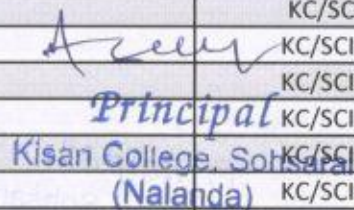 KC/SC
KC/SCI
KC/SCI
Principal KC/SCI
Kisan College, Sohsarai KC/SCI
(Nalanda) KC/SCI